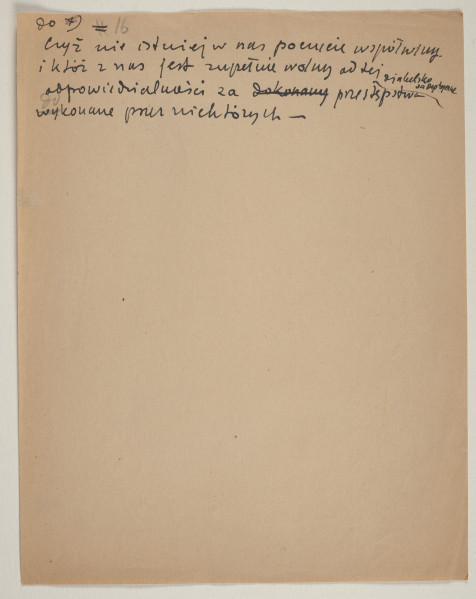 do *) # 16
Czyż nie istnieje w nas poczucie współwiny
i któż z nas jest zupełnie wolny od tej
odpowiedzialności za dokonany diabelsko sadystyczne przestępstwa
wykonane przez niektórych —